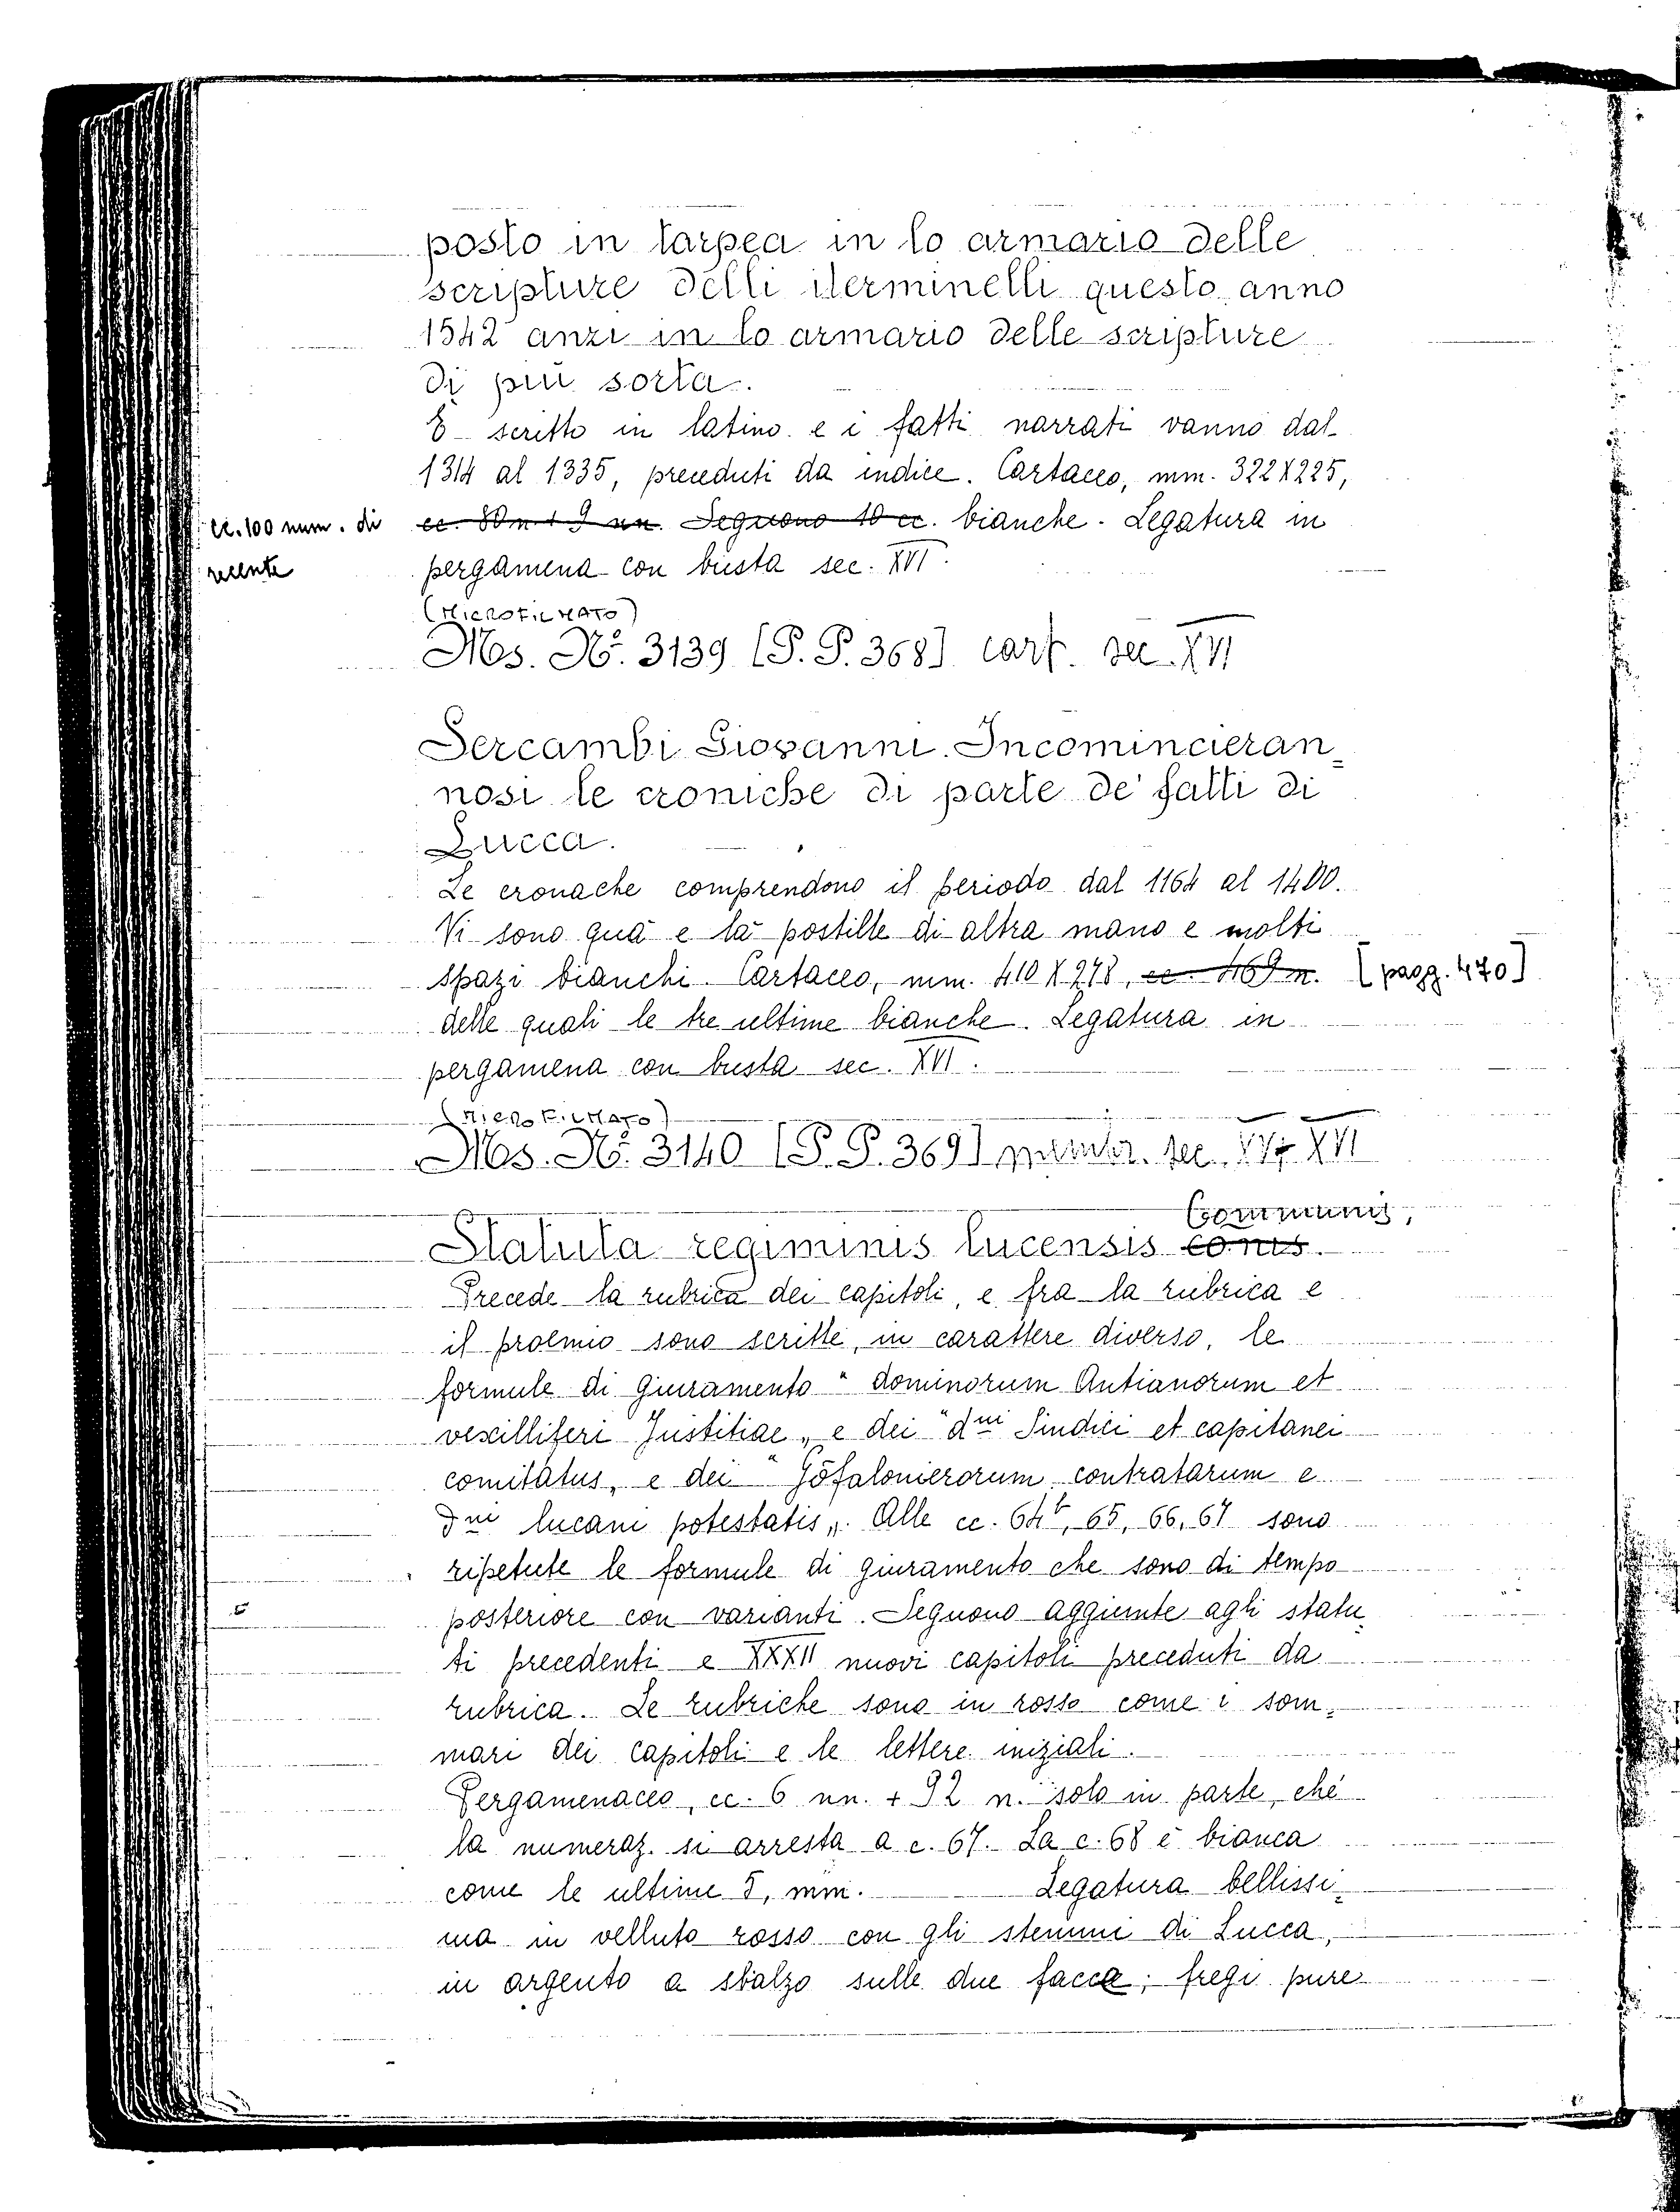 posto in tarpea in lo armario delle
scripture delli iterminelli questo anno
1542 anzi in lo armario delle scripture
di più sorta.
È scritto in latino e i fatti narrati vanno dal
1314 al 1335, preceduti da indice. Cartaceo, mm. 322X225,
cc. 100 num. di cc. 80 n + 9 nn. Seguono 10 cc. bianche. Legatura in
recente pergamena con busta sec. XVI.
(MICROFILMATO)
Mss. Nº. 3139 [P. P. 368] cart. sec. XVI
Sercambi Giovanni. Incomincieran_
nosi le croniche di parte de' fatti di
Lucca.
Le cronache comprendono il periodo dal 1164 al 1400.
Vi sono quà e là postille di altra mano e molti
spazi bianchi. Cartaceo, mm. 410 X 278, cc. 469 n. [pagg. 470]
delle quali le tre ultime bianche. Legatura in
pergamena con busta sec. XVI.
(MICROFILMATO)
Mss. Nº. 3140 [P. P. 369] membr. sec. XVI
Communis,
Statuta regiminis lucensis conis.
Precede la rubrica dei capitoli, e fra la rubrica e
il proemio sono scritte, in carattere diverso, le
formule di giuramento " dominorum Antianorum et
vexilliferi Justitiae „ e dei "dni Sindici et capitanei
comitatus, e dei " Gõfalonierorum contratarum e
Dni lucani potestatis „. Alle cc. 64t, 65, 66, 67 sono
ripetute le formule di giuramento che sono di tempo
posteriore con varianti. Seguono aggiunte agli statu_
ti precedenti e XXXII nuovi capitoli preceduti da
rubrica. Le rubriche sono in rosso come i som_
mari dei capitoli e le lettere iniziali.
Pergamenaceo, cc. 6 nn. + 92 n. solo in parte, chè
la numeraz. si arresta a c. 67. La c. 68 è bianca
come le ultime 5, mm. Legatura bellissi_
ma in velluto rosso con gli stemmi di Lucca,
in argento a sbalzo sulle due facce; fregi pure